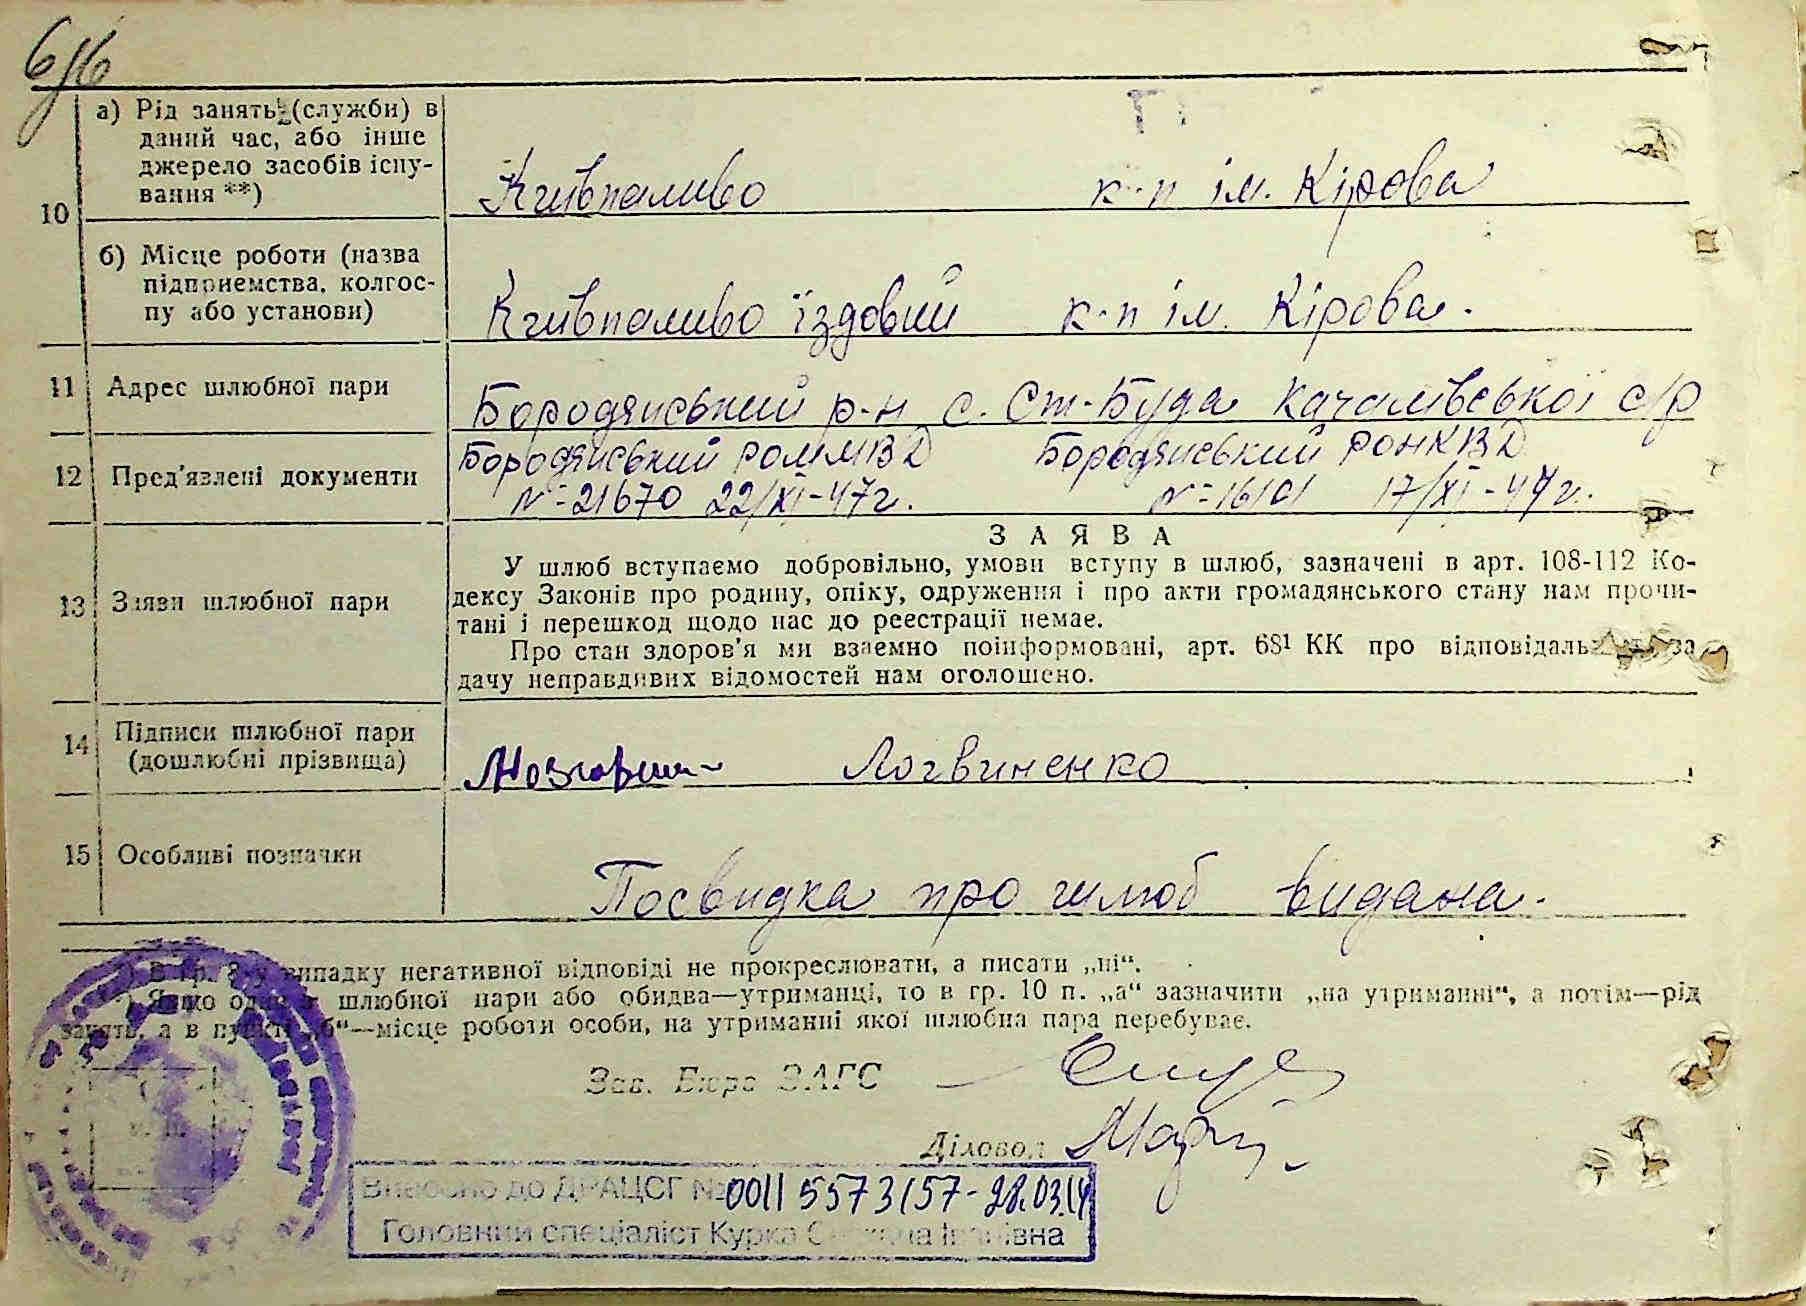 а) Рід занять (служби) в
даний час, або інше
джерело засобів існу-
вання **)
10
Київпаливо к-п ім. Кірова
б) Місце роботи (назва
підприемства, колгос-
пу або установи)
Київпаливо їздовий к-п ім. Кірова.
11 Адрес шлюбної пари
Бородянський р-н с. Ст-Буда Качалівської с/р
12 Пред'явлені документи
Бородянський РОММВД Бородянський РОНКВД
№=21670 22/XI-47г. №=16101 17/XI-47г.
ЗАЯВА
13 Заяви шлюбної пари
У шлюб вступаємо добровільно, умови вступу в шлюб, зазначені в арт. 108-112 Ко-
дексу Законів про родину, опіку, одруження і про акти громадянського стану нам прочи-
тані і перешкод щодо нас до реестрації немає.
Про стан здоров'я ми взаемно поінформовані, арт. 68¹ КК про відповідальність за
дачу неправдивих відомостей нам оголошено.
14 Підписи шлюбної пари
(дошлюбні прізвища)
Логвиненко
15 Особливі позначки
Посвидка про шлюб видана.
*) В гр. 8-у випадку негативної відповіді не прокреслювати, а писати „ні“.
**) Якщо один з шлюбної пари або обидва—утриманці, то в гр. 10 п. „а“ зазначити „на утриманні“, а потім—рід
занять, а в пункті „б“—місце роботи особи, на утриманні якої шлюбна пара перебуває.
Зав. Бюро ЗАГС
Діловод
Внесено до ДРАЦСГ № 00115573157-28.03.14
Головний спеціаліст Курка Світлана Іванівна